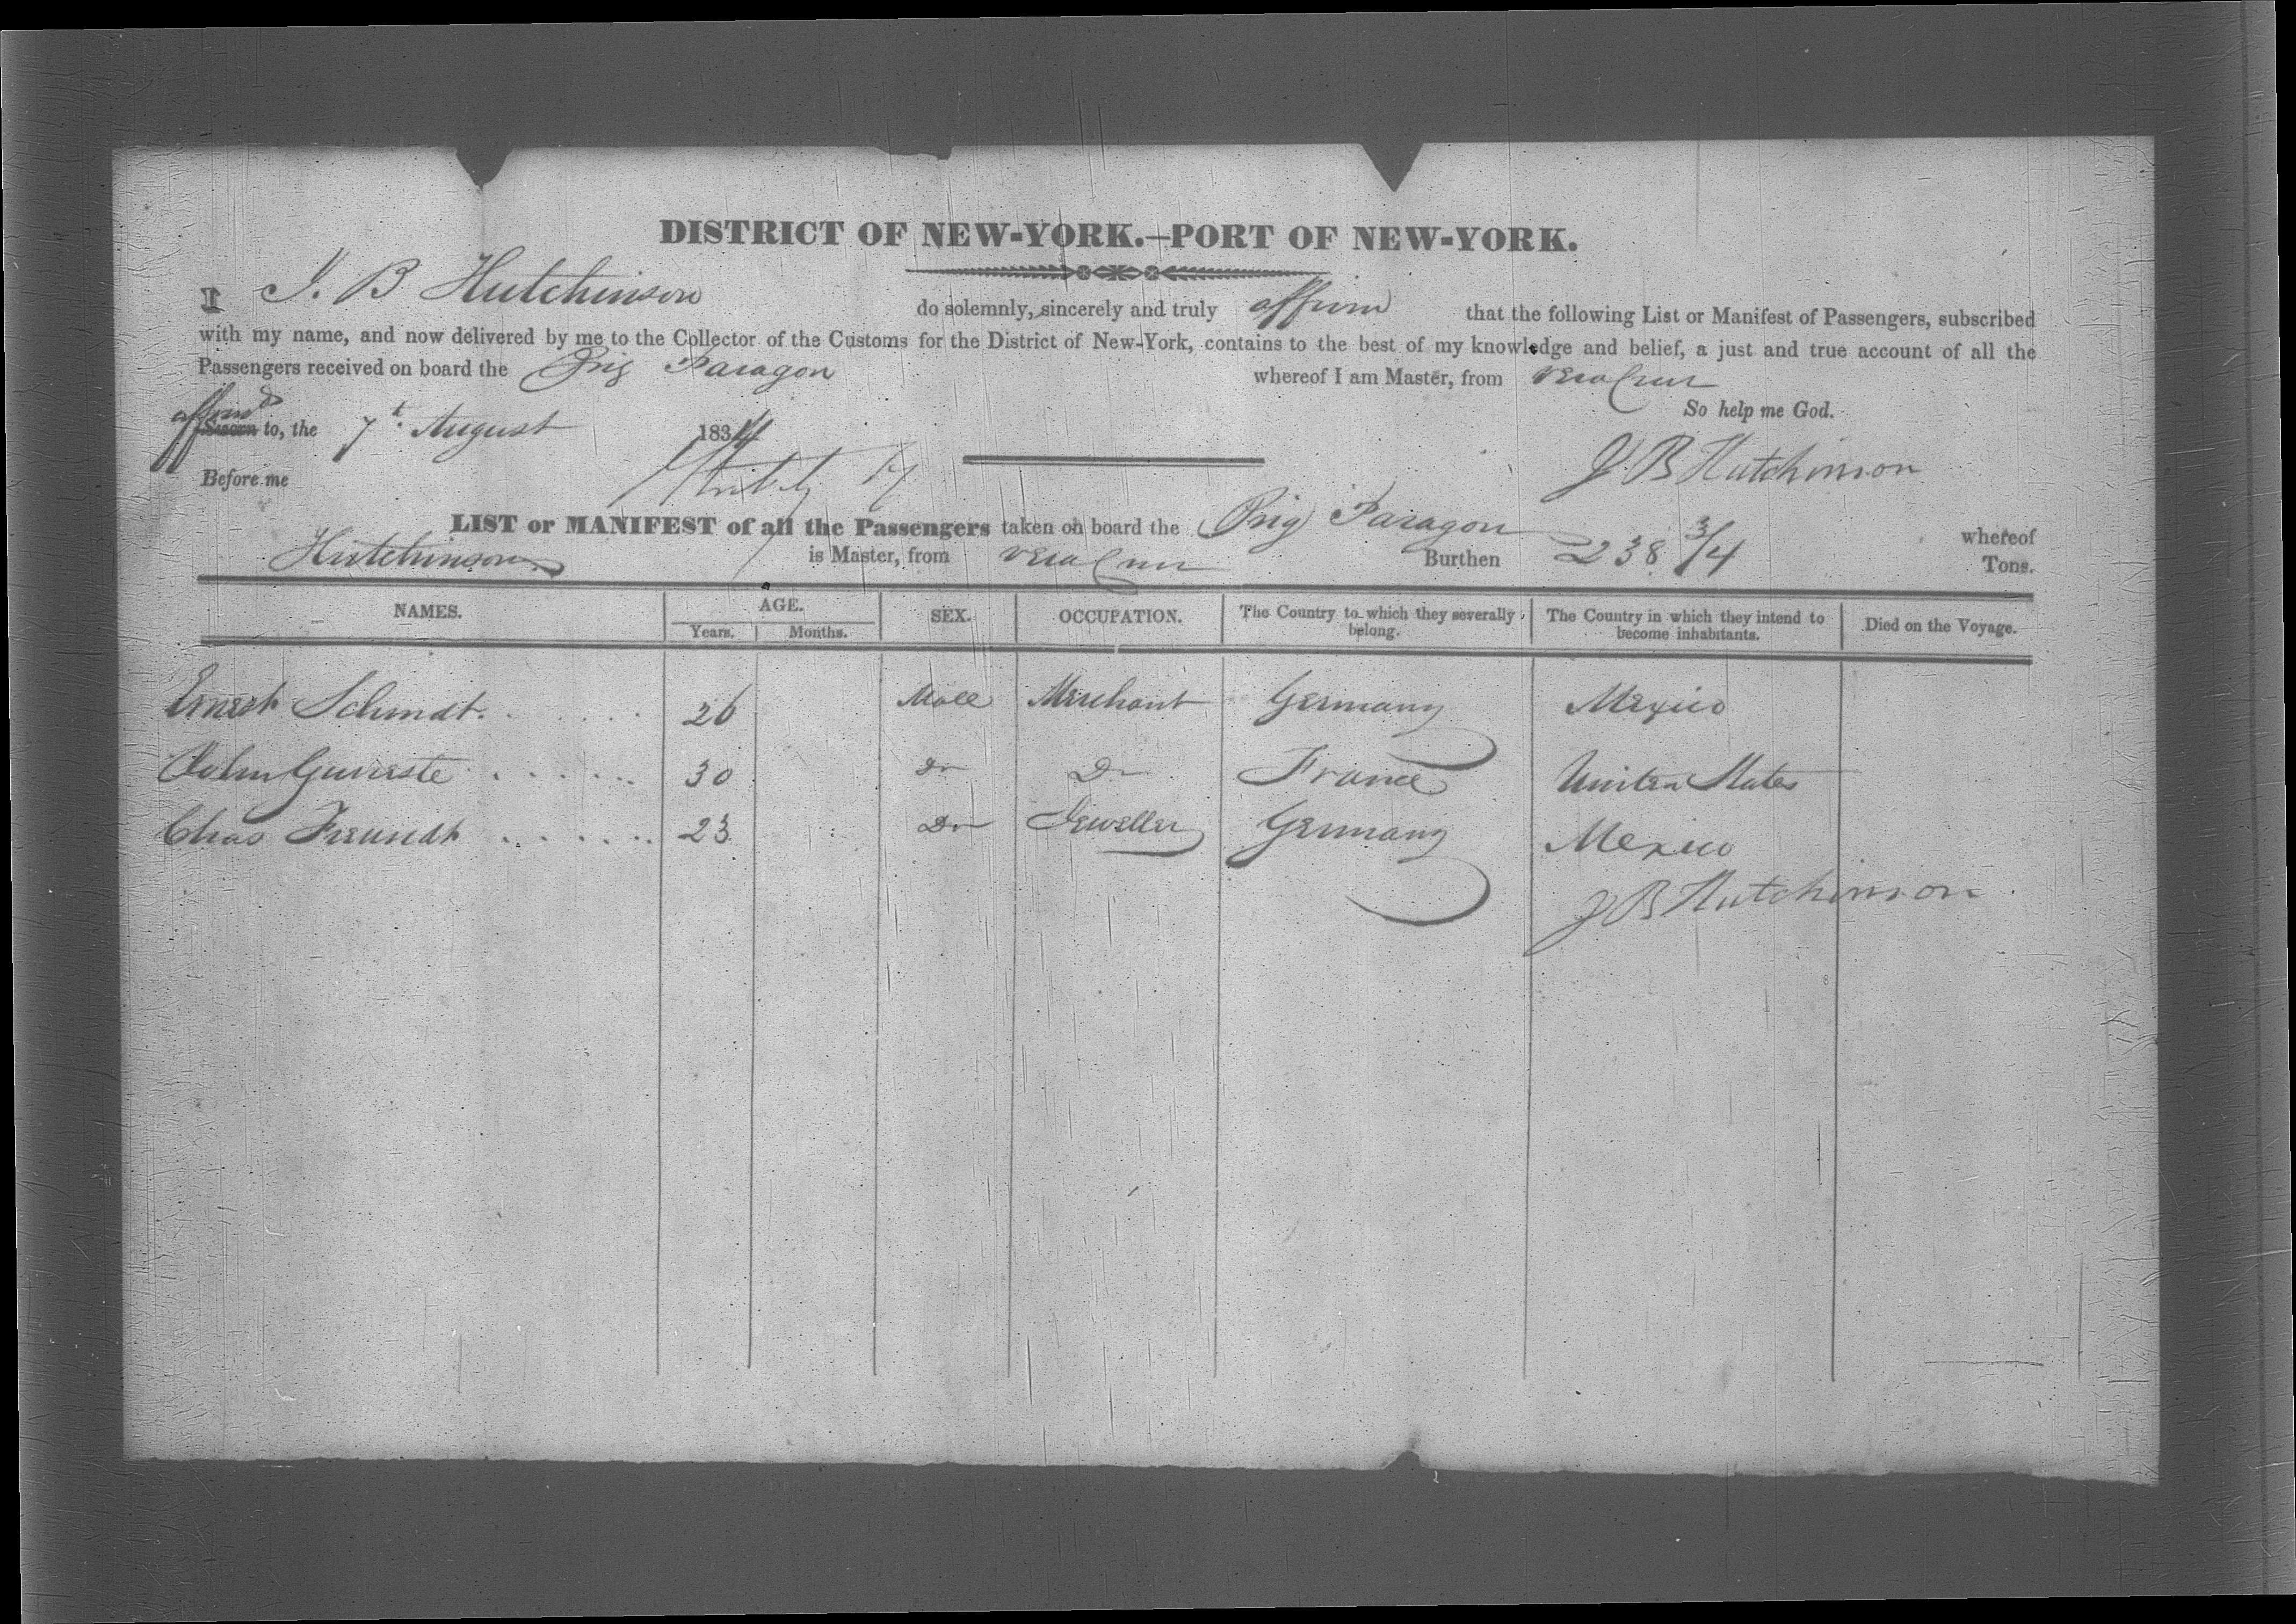 DISTRICT OF NEW-YORK.—PORT OF NEW-YORK.
I J. B Hutchinson do solemnly, sincerely and truly affirm that the following List or Manifest of Passengers, subscribed
with my name, and now delivered by me to the Collector of the Customs for the District of New-York, contains to the best of my knowledge and belief, a just and true account of all the
Passengers received on board the Brig Paragon whereof I am Master, from Vera Cruz
So help me God.
affirmd
Sworn to, the 7th August 1834
J B Hutchinson
Before me
LIST or MANIFEST of all the Passengers taken on board the Brig Paragon whereof
Hutchinson is Master, from Vera Cruz Burthen 238 3/4 Tons.
NAMES. AGE. SEX. OCCUPATION. The Country to which they severally belong. The Country in which they intend to become inhabitants. Died on the Voyage.
Years. Months.
Ernest Schmdt. 26 Male Merchant Germany Mexico
John 30 Do Do France United States
Chas Freundt 23 Do Jeweller Germany Mexico
J B Hutchinson